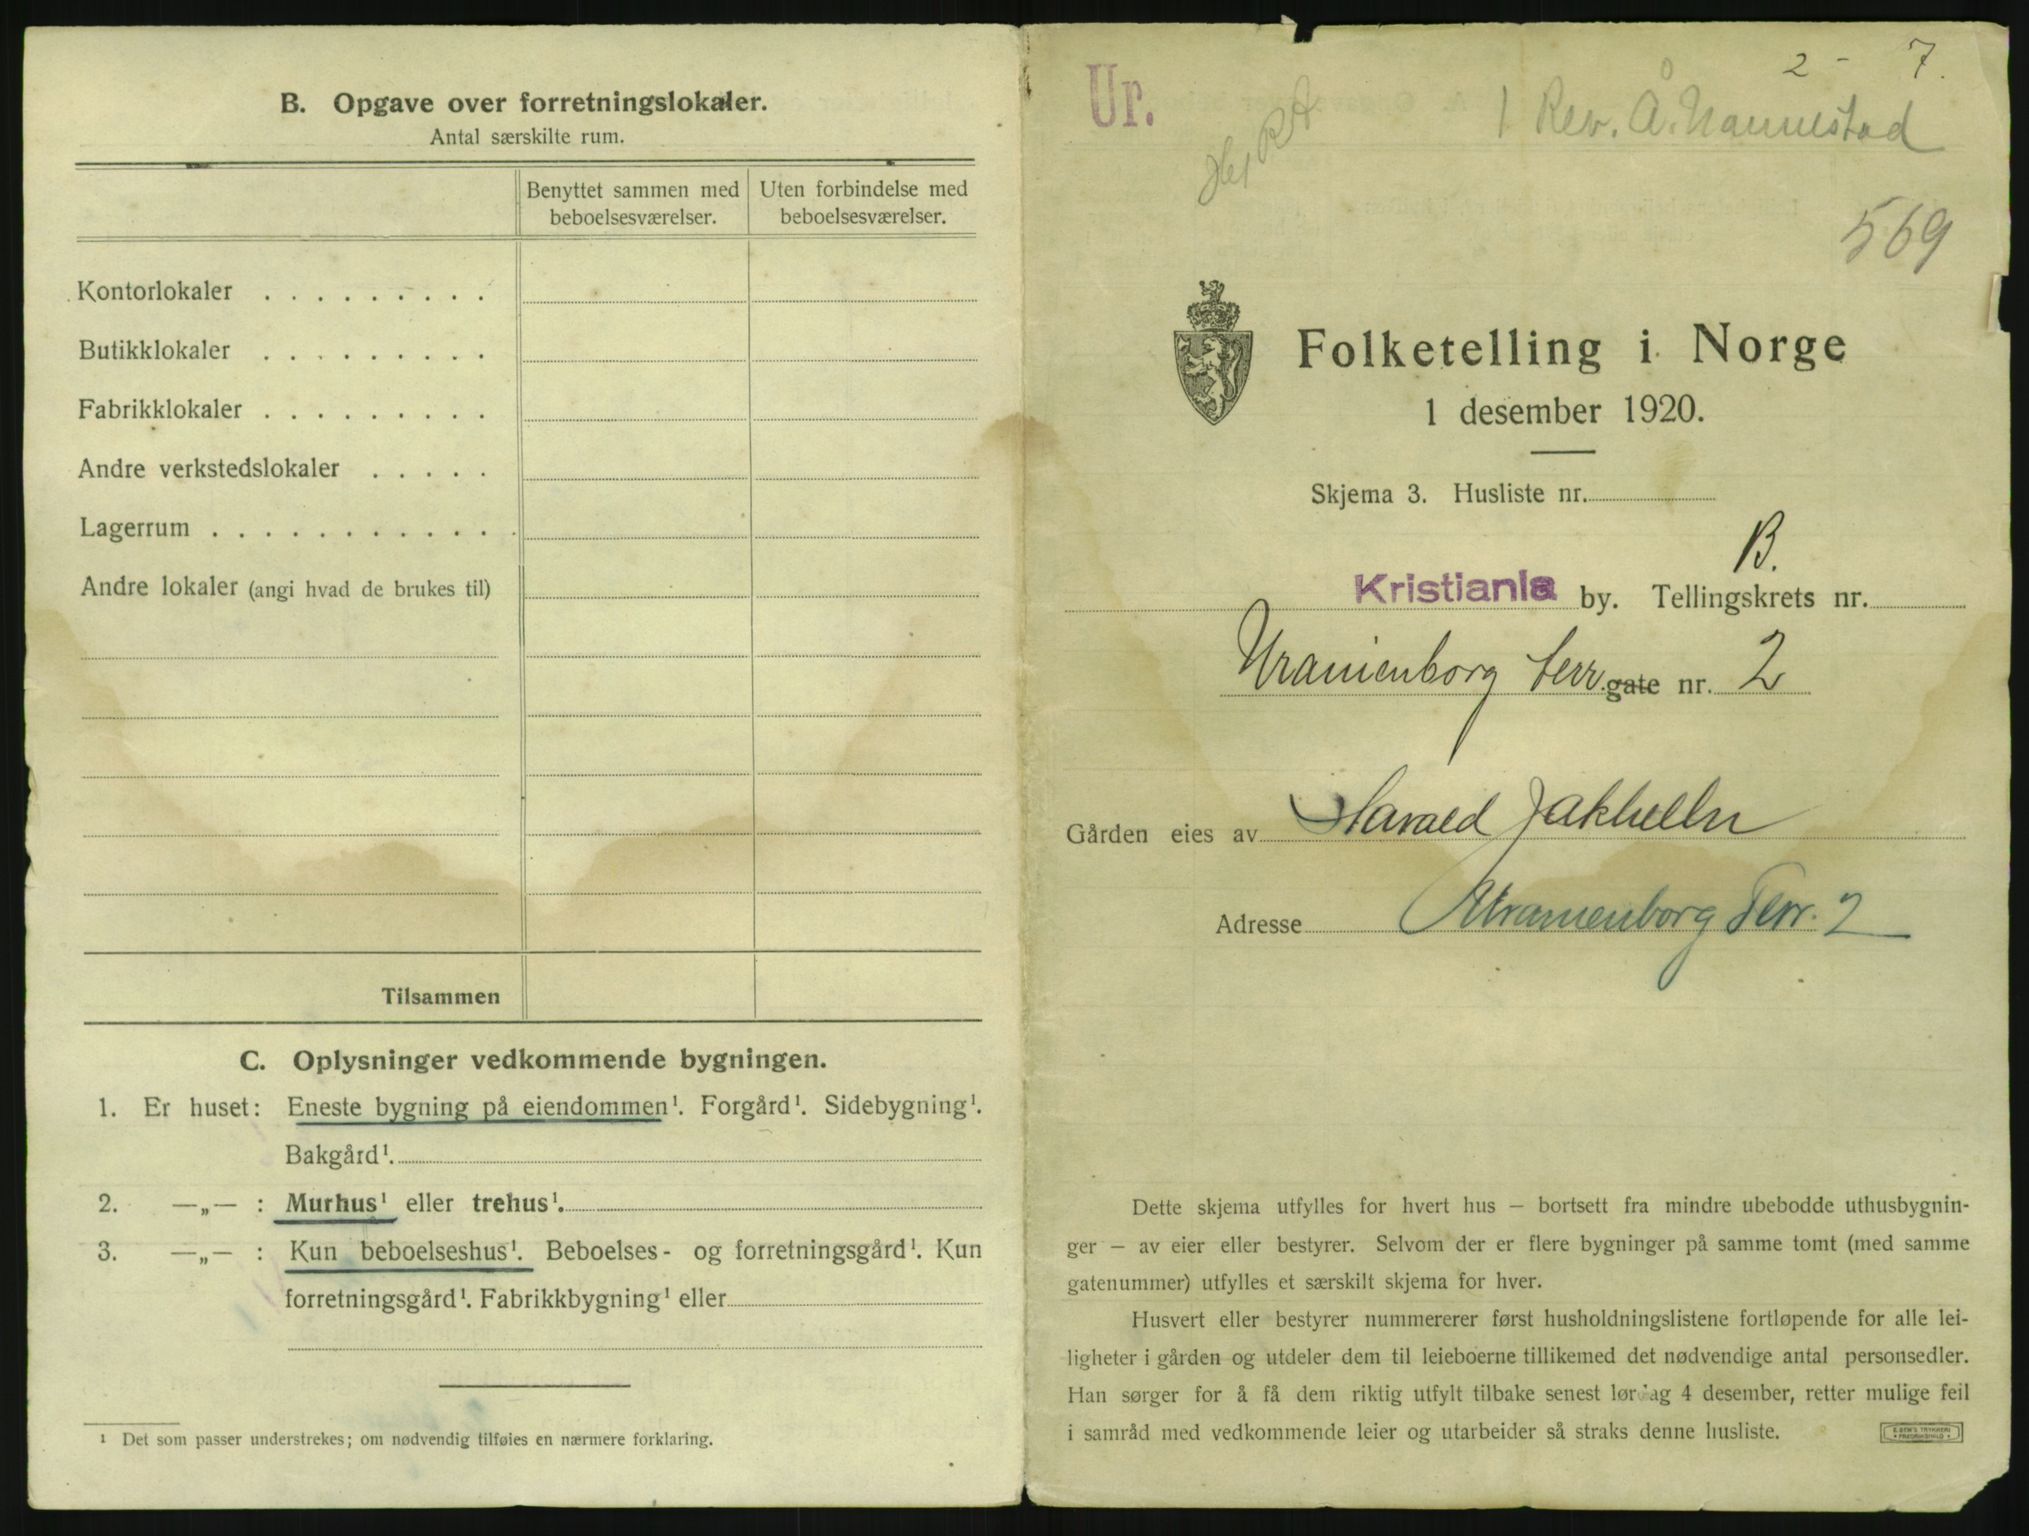 B. Opgave over forretningslokaler.
Antal særskilte rum.
Benyttet sammen med beboelsesværelser.
Uten forbindelse med beboelsesværelser.
Kontorlokaler . . . . . . . . .
Butikklokaler . . . . . . . . .
Fabrikklokaler . . . . . . . . .
Andre verkstedslokaler . . . . .
Lagerrum . . . . . . . . . . . .
Andre lokaler (angi hvad de brukes til)
Tilsammen
C. Oplysninger vedkommende bygningen.
1. Er huset: Eneste bygning på eiendommen¹. Forgård¹. Sidebygning¹.
Bakgård¹.
2. —„— : Murhus¹ eller trehus¹.
3. —„— : Kun beboelseshus¹. Beboelses- og forretningsgård¹. Kun
forretningsgård¹. Fabrikkbygning¹ eller
¹ Det som passer understrekes; om nødvendig tilføies en nærmere forklaring.
2 - 7.
Ur.
1 Rev. Å. Nannestad
569
Folketelling i Norge
1 desember 1920.
Skjema 3. Husliste nr.
B.
Kristiania by. Tellingskrets nr.
Uranienborg terr. gate nr. 2
Gården eies av Harald Jakhelln
Adresse Uranienborg Terr. 2
Dette skjema utfylles for hvert hus – bortsett fra mindre ubebodde uthusbygnin-
ger – av eier eller bestyrer. Selvom der er flere bygninger på samme tomt (med samme
gatenummer) utfylles et særskilt skjema for hver.
Husvert eller bestyrer nummererer først husholdningslistene fortløpende for alle lei-
ligheter i gården og utdeler dem til leieboerne tillikemed det nødvendige antal personsedler.
Han sørger for å få dem riktig utfylt tilbake senest lørdag 4 desember, retter mulige feil
i samråd med vedkommende leier og utarbeider så straks denne husliste.